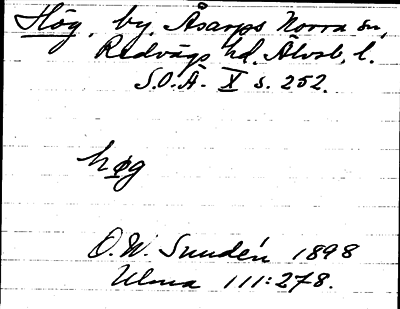 Hög, by, Åsarps Norra sn,
Redvägs hd. Älvsb. l.
S.O.Ä. X s. 252.
høg
O.W. Sundén 1898
Ulma 111:278.